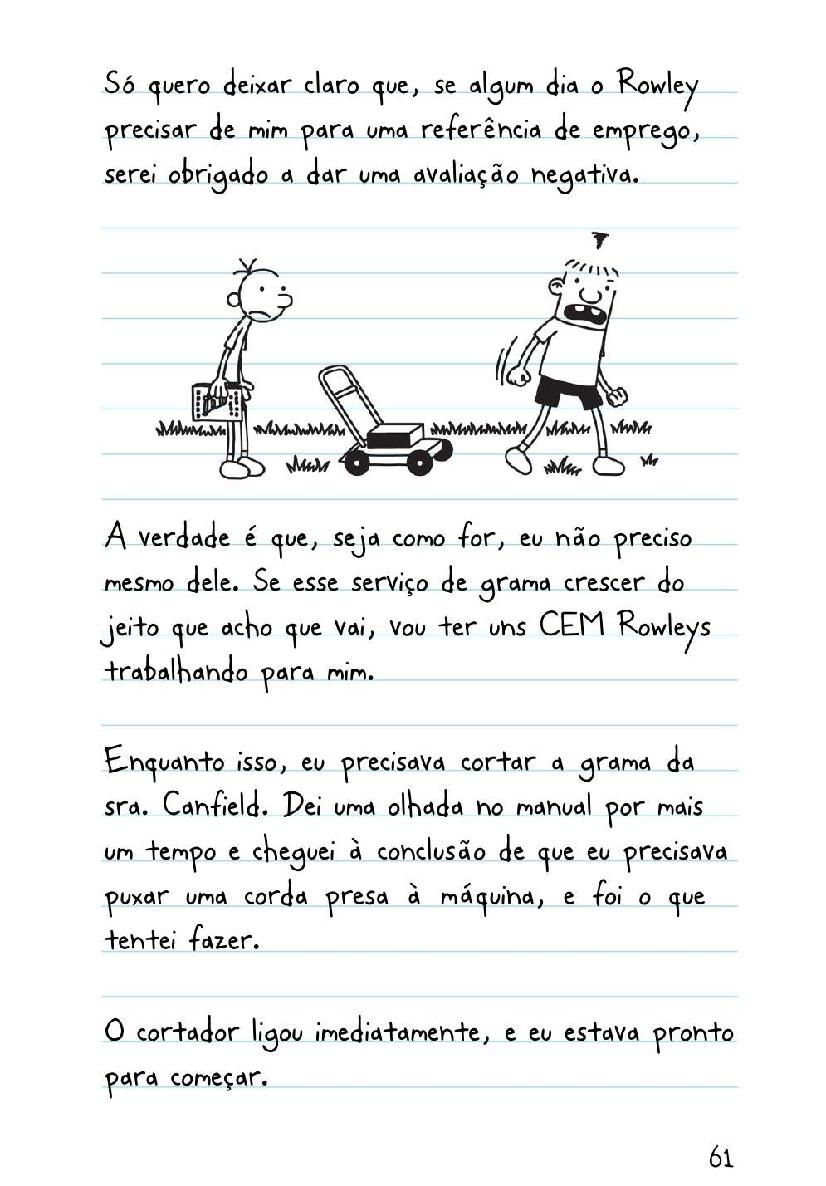 Só quero deixar claro que, se algum dia o Rowley
precisar de mim para uma referência de emprego,
serei obrigado a dar uma avaliação negativa.
A verdade é que, seja como for, eu não preciso
mesmo dele. Se esse serviço de grama crescer do
jeito que acho que vai, vou ter uns CEM Rowleys
trabalhando para mim.
Enquanto isso, eu precisava cortar a grama da
sra. Canfield. Dei uma olhada no manual por mais
um tempo e cheguei à conclusão de que eu precisava
puxar uma corda presa à máquina, e foi o que
tentei fazer.
O cortador ligou imediatamente, e eu estava pronto
para começar.
61